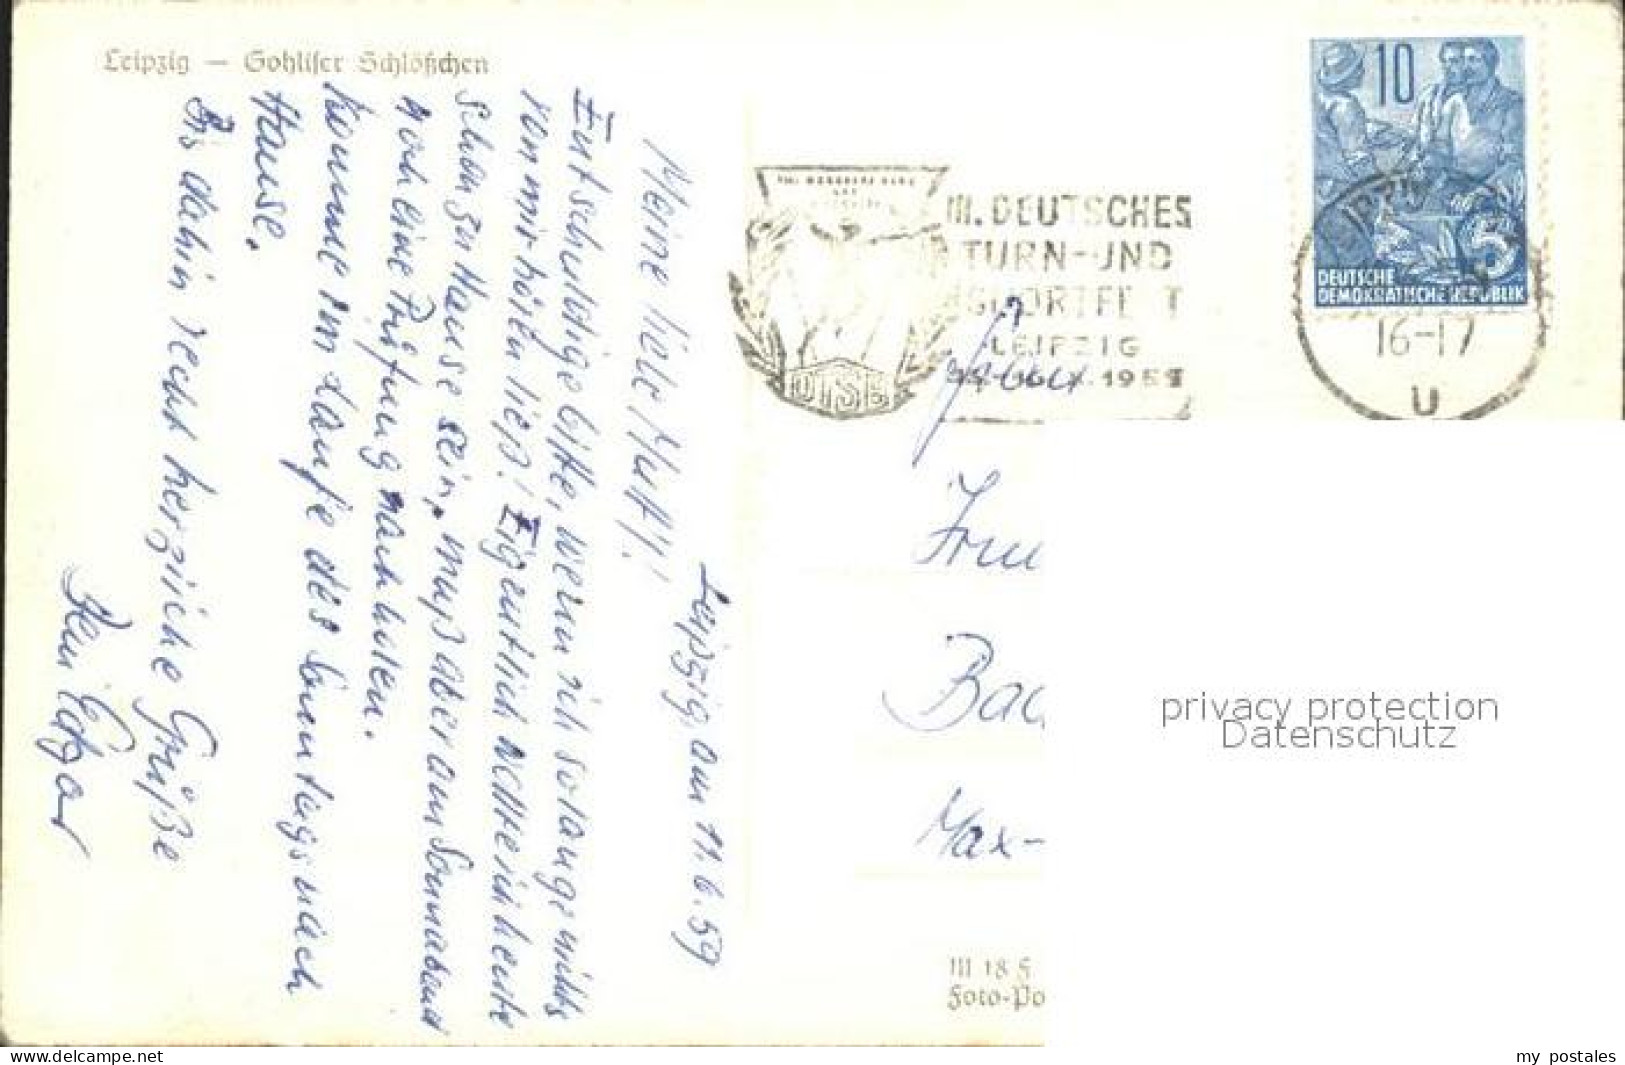 Leipzig — Gohliser Schlößchen
Leipzig, am 11.6.59
Meine liebe Mutti!
Entschuldige bitte, wenn ich solange nichts
von mir hören ließ! Eigentlich wollte ich heute
schon zu Hause sein, muß aber am Sonnabend
noch eine Prüfung nachholen.
Komme im Laufe des Sonntags nach
Hause.
Bis dahin recht herzliche Grüße
Dein
III. DEUTSCHES
TURN-UND
SPORTFEST
LEIPZIG
1959
DTSB
10
5
DEUTSCHE
DEMOKRATISCHE REPUBLIK
LEIPZIG
16-17
u
Max-
III 18 5
Foto-Po
privacy protection
Datenschutz
www.delcampe.net
my_postales